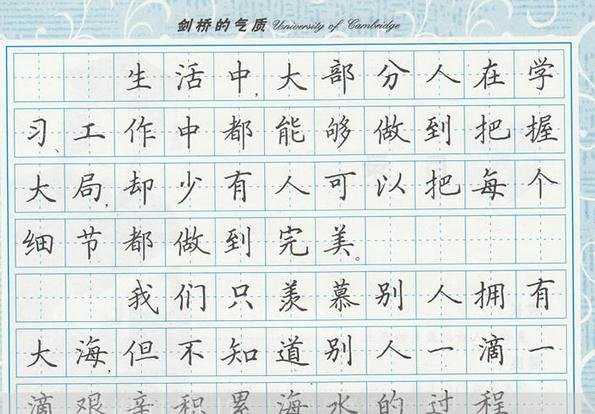 剑桥的气质 University of Cambridge
生活中,大部分人在学
习、工作中都能够做到把握
大局,却少有人可以把每个
细节都做到完美。
我们只羡慕别人拥有
大海,但不知道别人一滴一
滴艰辛积累海水的过程